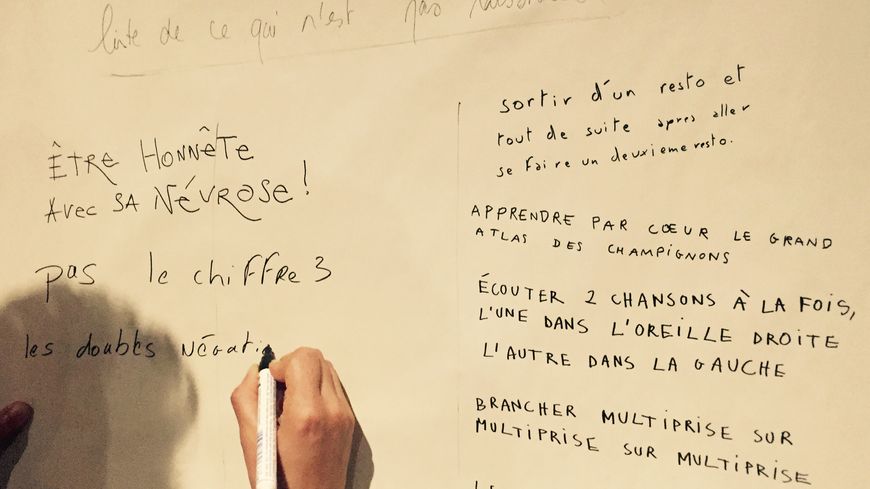 liste de ce qui n'est pas
ÊTRE HONNÊTE
AVEC SA NÉVROSE !
pas le chiffre 3
les doubles négati
sortir d'un resto et
tout de suite après aller
se faire un deuxieme resto.
APPRENDRE PAR CŒUR LE GRAND
ATLAS DES CHAMPIGNONS
ÉCOUTER 2 CHANSONS À LA FOIS,
L'UNE DANS L'OREILLE DROITE
L'AUTRE DANS LA GAUCHE
BRANCHER MULTIPRISE SUR
MULTIPRISE SUR MULTIPRISE